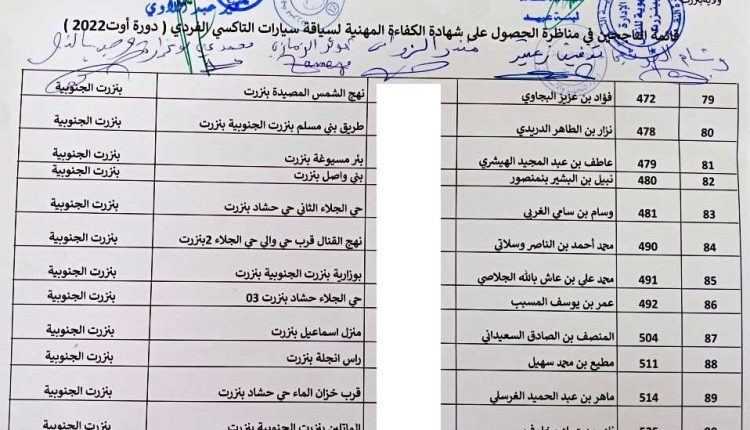 ولاية بنزرت
قائمة الناجحين في مناظرة الحصول على شهادة الكفاءة المهنية لسياقة سيارات التاكسي الفردي ( دورة أوت2022 )
79 472 فؤاد بن عزيز البجاوي نهج الشمس المصيدة بنزرت بنزرت الجنوبية
80 478 نزار بن الطاهر الدريدي طريق بني مسلم بنزرت الجنوبية بنزرت بنزرت الجنوبية
81 479 عاطف بن عبد المجيد الهيشري بئر مسيوغة بنزرت بنزرت الجنوبية
82 480 نبيل بن البشير بنمنصور بني واصل بنزرت بنزرت الجنوبية
83 481 وسام بن سامي الغربي حي الجلاء الثاني حي حشاد بنزرت بنزرت الجنوبية
84 490 محمد أحمد بن الناصر وسلاتي نهج القنال قرب حي والي حي الجلاء 2بنزرت بنزرت الجنوبية
85 491 محمد علي بن عاش بالله الجلاصي بوزارية بنزرت الجنوبية بنزرت بنزرت الجنوبية
86 492 عمر بن يوسف المسبب حي الجلاء حشاد بنزرت 03 بنزرت الجنوبية
87 504 المنصف بن الصادق السعيداني منزل اسماعيل بنزرت بنزرت الجنوبية
88 511 مطيع بن محمد سهيل راس انجلة بنزرت بنزرت الجنوبية
89 514 ماهر بن عبد الحميد الغرسلي قرب خزان الماء حي حشاد بنزرت بنزرت الجنوبية
الماتلين بنزرت الجنوبية بنزرت بنزرت الجنوبية